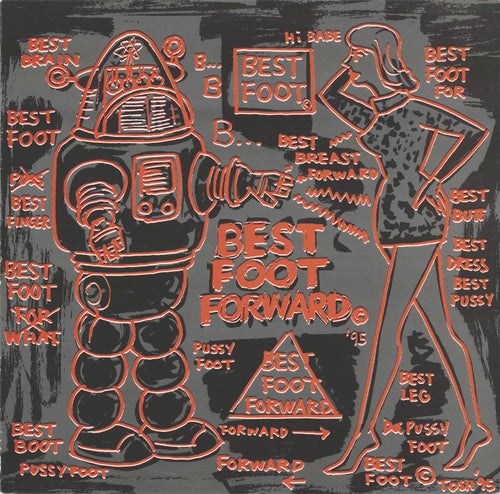 BEST
BRAIN
B...
B
B...
BEST
FOOT
©
Hi BABE
BEST
FOOT
FOR
BEST
FOOT
BEST
FINGER
BEST
BREAST
FORWARD
BEST
FOOT
FOR
WHAT
BEST
FOOT
FORWARD©
'95
BEST
BUTT
BEST
DRESS
BEST
PUSSY
PUSSY
FOOT
BEST
FOOT
FORWARD
FORWARD →
FORWARD
←
BEST
LEG
PUSSY
FOOT
BEST
BOOT
PUSSYFOOT
BEST
FOOT ©
TOSH '95